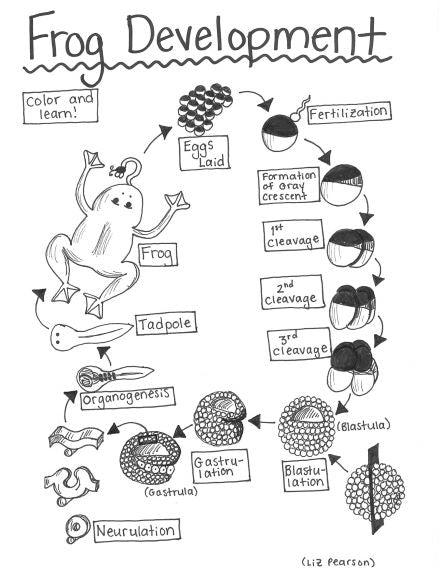 Frog Development
Color and
learn!
Eggs
Laid
Fertilization
Formation
of Gray
Crescent
1st
Cleavage
2nd
Cleavage
3rd
Cleavage
(Blastula)
Blastu-
lation
Gastru-
lation
(Gastrula)
Neurulation
Organogenesis
Tadpole
Frog
(Liz Pearson)